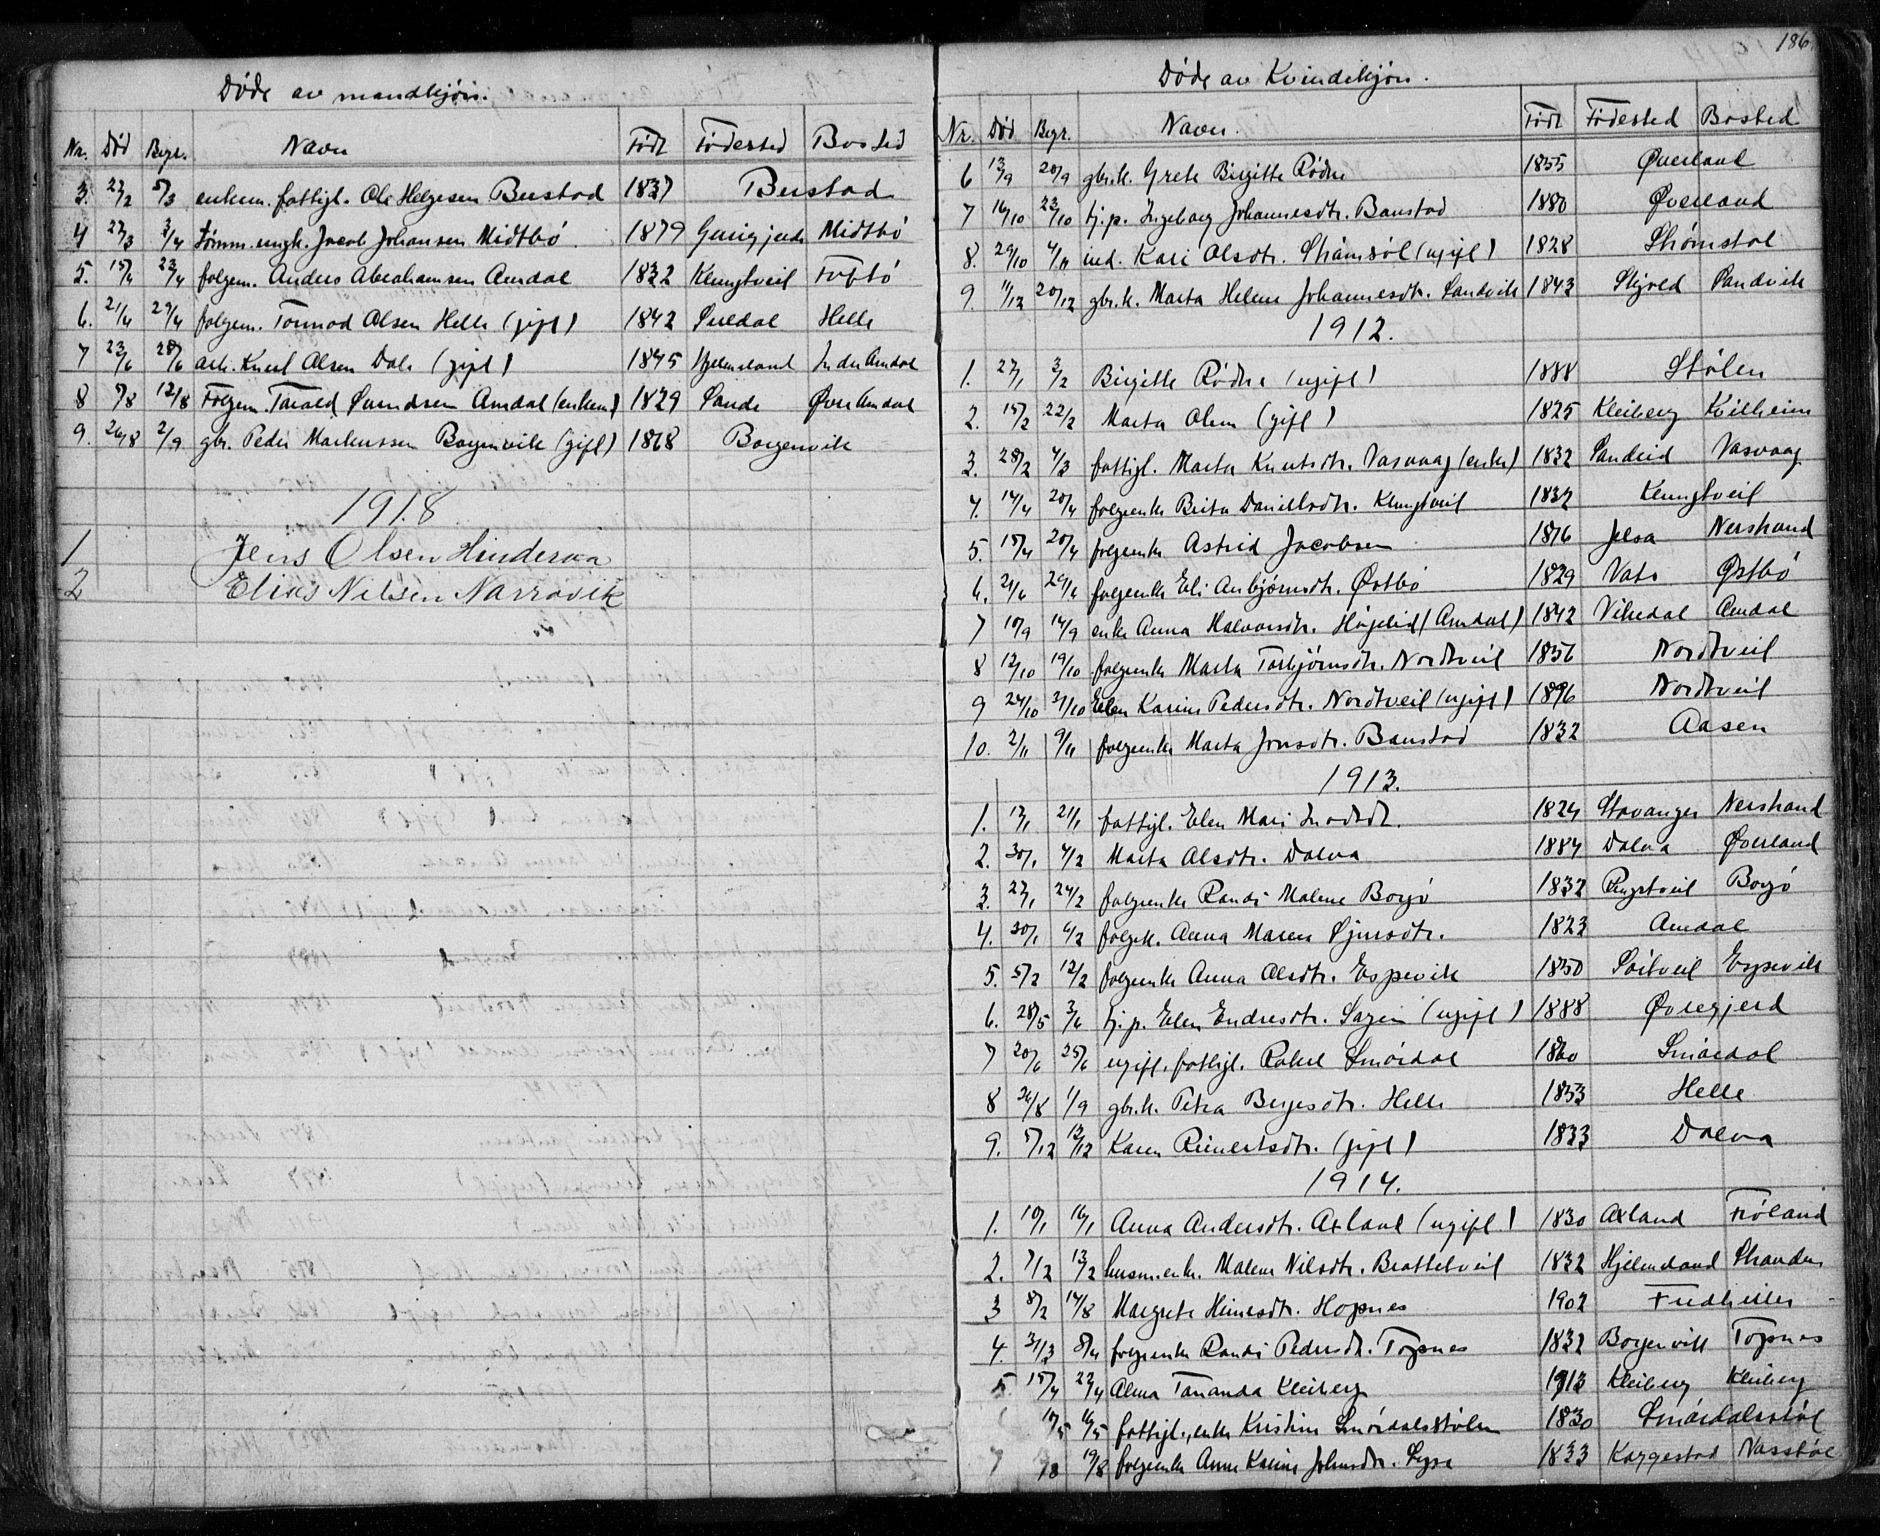 Døde av mandkjøn.
Nr. Død Begr. Navn Født Fødested Bosted
3. 22/2 5/3 enkem. fattigl. Ole Helgesen Bustad 1837 Bustad
4 27/3 3/4 Tømm. ungk. Jacob Johansen Midtbö 1879 Midtbö
5. 15/4 23/4 folgem. Anders Abrahamsen Amdal 1832 Klungtveit
6. 21/4 29/4 folgem. Tormod Olsen Helle (gift) 1842 Suldal Helle
7 23/6 28/6 arb. Knut Olsen Dale (gift) 1845 Hjelmeland Indre Amdal
8 7/8 12/8 Folgem. Tarald Amdal (enkem) 1829 Sande Øvre Amdal
9. 26/8 2/9 gbr. Peder Markussen Borgenvik (gift) 1868 Borgenvik
1918
1 Jens Olsen Hinderaa
2 Elias Nilsen Narravik
186
Døde av Kvindekjøn.
Nr. Død Begr. Navn. Født Fødested Bosted
6 13/9 20/9 gbr.k. Grete Birgitte Rødne 1855 Øverland
7 16/10 23/10 tj.p. Ingeborg Johannesdtr. Baustad 1880 Øverland
8. 29/10 4/11 ind. Kari Olsdtr. Strømstøl (ugift) 1828 Strømstøl
9. 11/12 20/12 gbr.k. Marta Helene Johannesdtr. Sandvik 1843 Skjold Sandvik
1912.
1. 27/1 3/2 Birgitte Rødne (ugift) 1888 Stølen
2. 15/2 22/2 Marta Olsen (gift) 1825 Kleiberg
3. 28/2 4/3 fattigl. Marta Knutsdtr. Vasvaag (enke) 1832 Sandeid Vasvaag
4. 14/4 20/4 folgeenke Berta Danielsdtr. Klungtveit 1837 Klungtveit
5. 15/4 20/4 folgeenke Astrid Jacobsen 1816 Jelsa Nerstrand
6. 21/6 29/6 folgeenke Eli Asbjørnsdtr. Østbö 1829 Vats Østbö
7 10/9 14/9 enke Anna Halvorsdtr. Højelid (Amdal) 1842 Vikedal Amdal
8 12/10 19/10 folgeenke Marta Torbjørnsdtr. Nordtveit 1856 Nordtveit
9 24/10 31/10 Elen Karine Pedersdtr. Nordtveit (ugift) 1896 Nordtveit
10. 2/11 9/11 folgeenke Marta Jonsdtr. Baustad 1832 Aasen
1913.
1. 17/1 21/1 fattigl. Elen Mari 1824 Stavanger Nerstrand
2. 30/1 4/2 Marta Olsdtr. Dalva 1884 Dalva Øverland
3. 27/1 24/2 folgeenke Randi Malene Borgö 1832 Borgö
4. 30/1 6/2 folgek. Anna Maren 1823 Amdal
5. 5/2 12/2 folgeenke Anna Olsdtr. Espevik 1850 Espevik
6. 28/5 3/6 tj.p. Elen Endresdtr. (ugift) 1888 Øvregjerd
7 20/6 25/6 ugift. fattigl. Rakel Smördal 1860 Smördal
8 26/8 1/9 gbr.k. Petra Bergesdtr. Helle 1853 Helle
9. 5/12 12/12 Karen Reinertsdtr. (gift) 1833 Dalva
1914.
1. 10/1 16/1 Anna Andersdtr. Axland (ugift) 1830 Axland Fröland
2. 7/2 13/2 husm.enk. Malene Nilsdtr. Brattetveit 1832 Hjelmeland Stranden
3 8/2 14/8 Margrete Hopnes 1902 Fredheim
4. 31/3 8/4 folgeenke Randi Pedersdtr. Topnes 1832 Borgenvik Topnes
5 15/4 22/4 Alma Tananda Kleiberg 1913 Kleiberg Kleiberg
10/5 16/5 fattigl., enke Kristine Smördalsstølen 1830 Smördalsstøl
7 /8 19/8 folgeenke Anne Karine Johnsdtr. 1833 Kaggestad Nasstöl